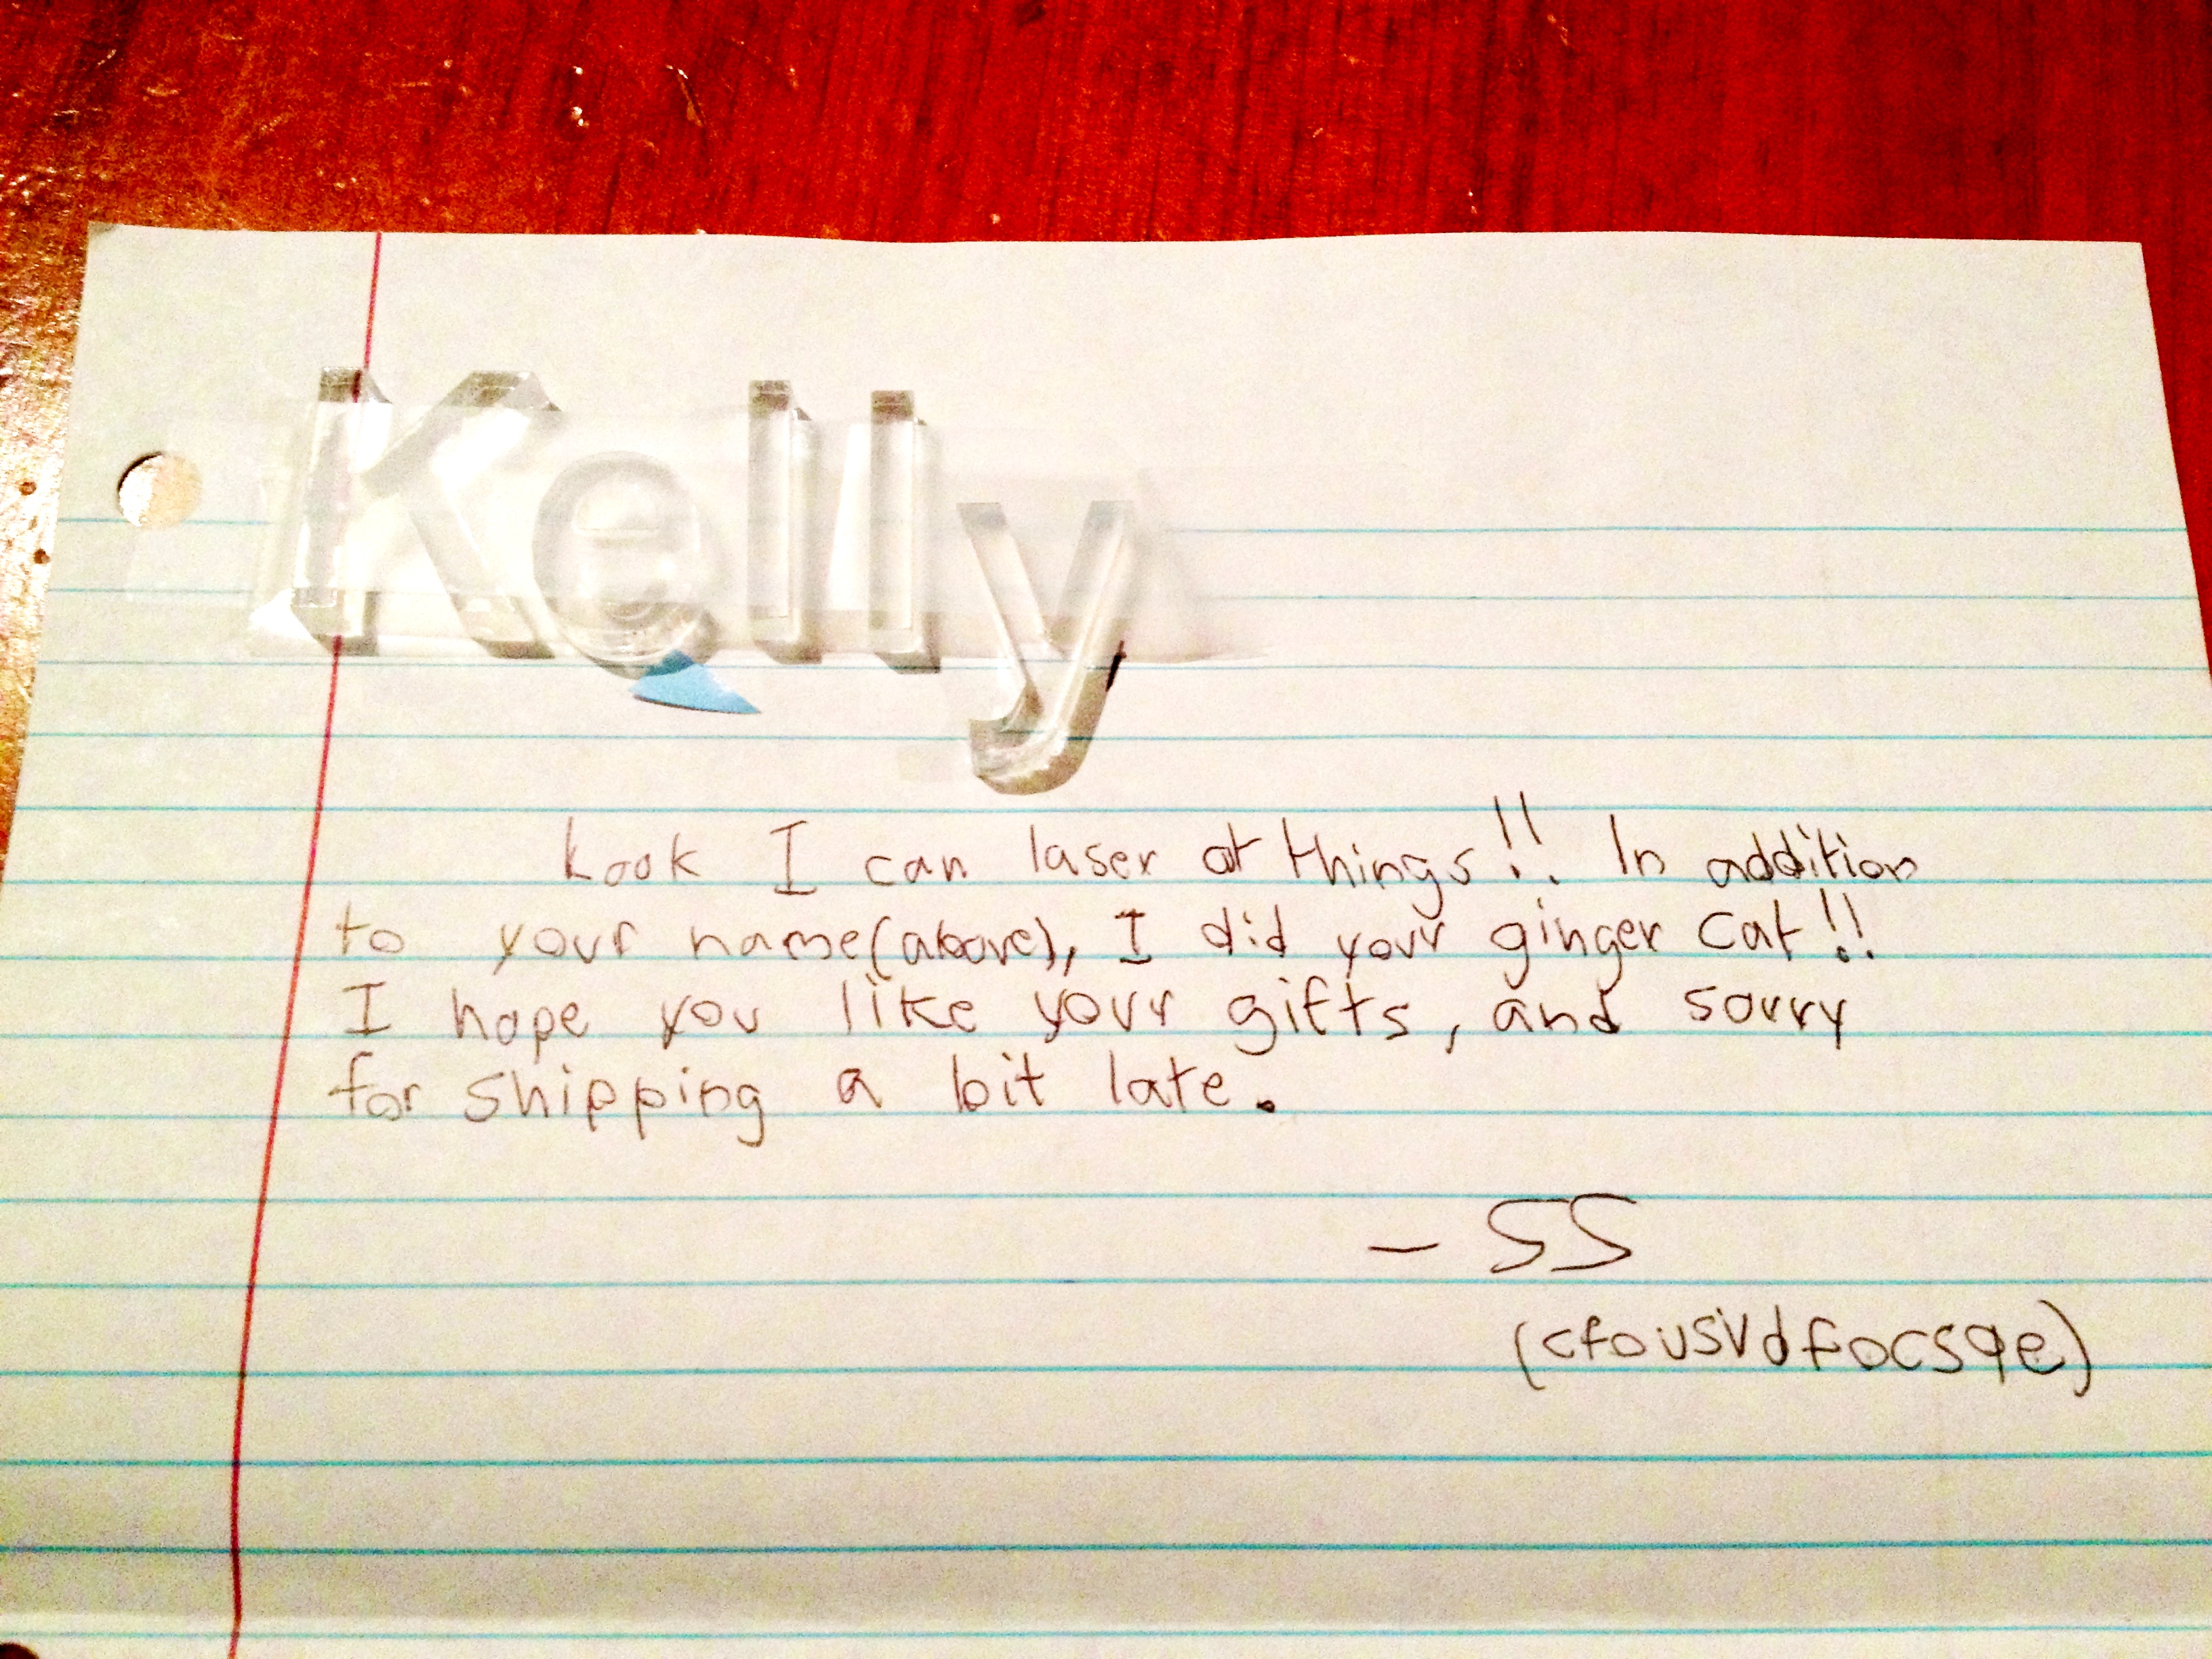 Kelly
Look I can laser at things!! In addition
to your name(above), I did your ginger cat!!
I hope you like your gifts, and sorry
for shipping a bit late.
- SS
(cfousvdfocsqe)